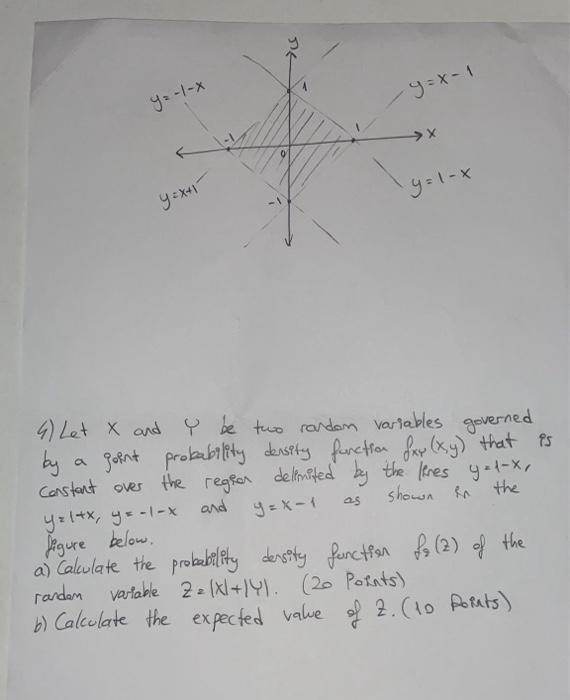 y
y=-1-x
1
y=x-1
-1
1
x
0
y=x+1
y=1-x
-1
4) Let X and Y be two random variables governed
by a joint probability density function fxy(x,y) that is
constant over the region delimited by the lines y=1-x,
y=1+x, y=-1-x and y=x-1 as shown in the
figure below.
a) Calculate the probability density function fz(z) of the
random variable Z=|X|+|Y|. (20 Points)
b) Calculate the expected value of Z. (10 Points)